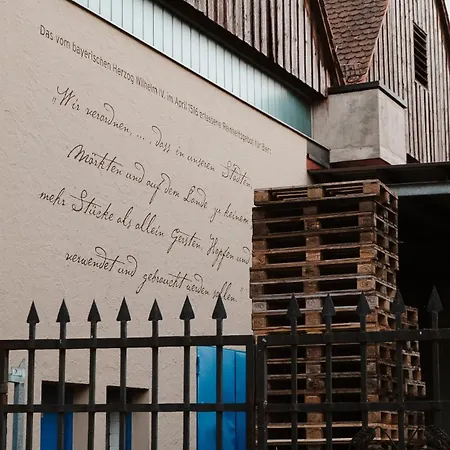 Das vom bayerischen Herzog Wilhelm IV. im April 1516 erlassene Reinheitsgebot für Bier:
„Wir verordnen, ... dass in unseren Städten,
Märkten und auf dem Lande zu keinem
mehr Stücke als allein Gersten, Hopfen und
verwendet und gebraucht werden sollen."